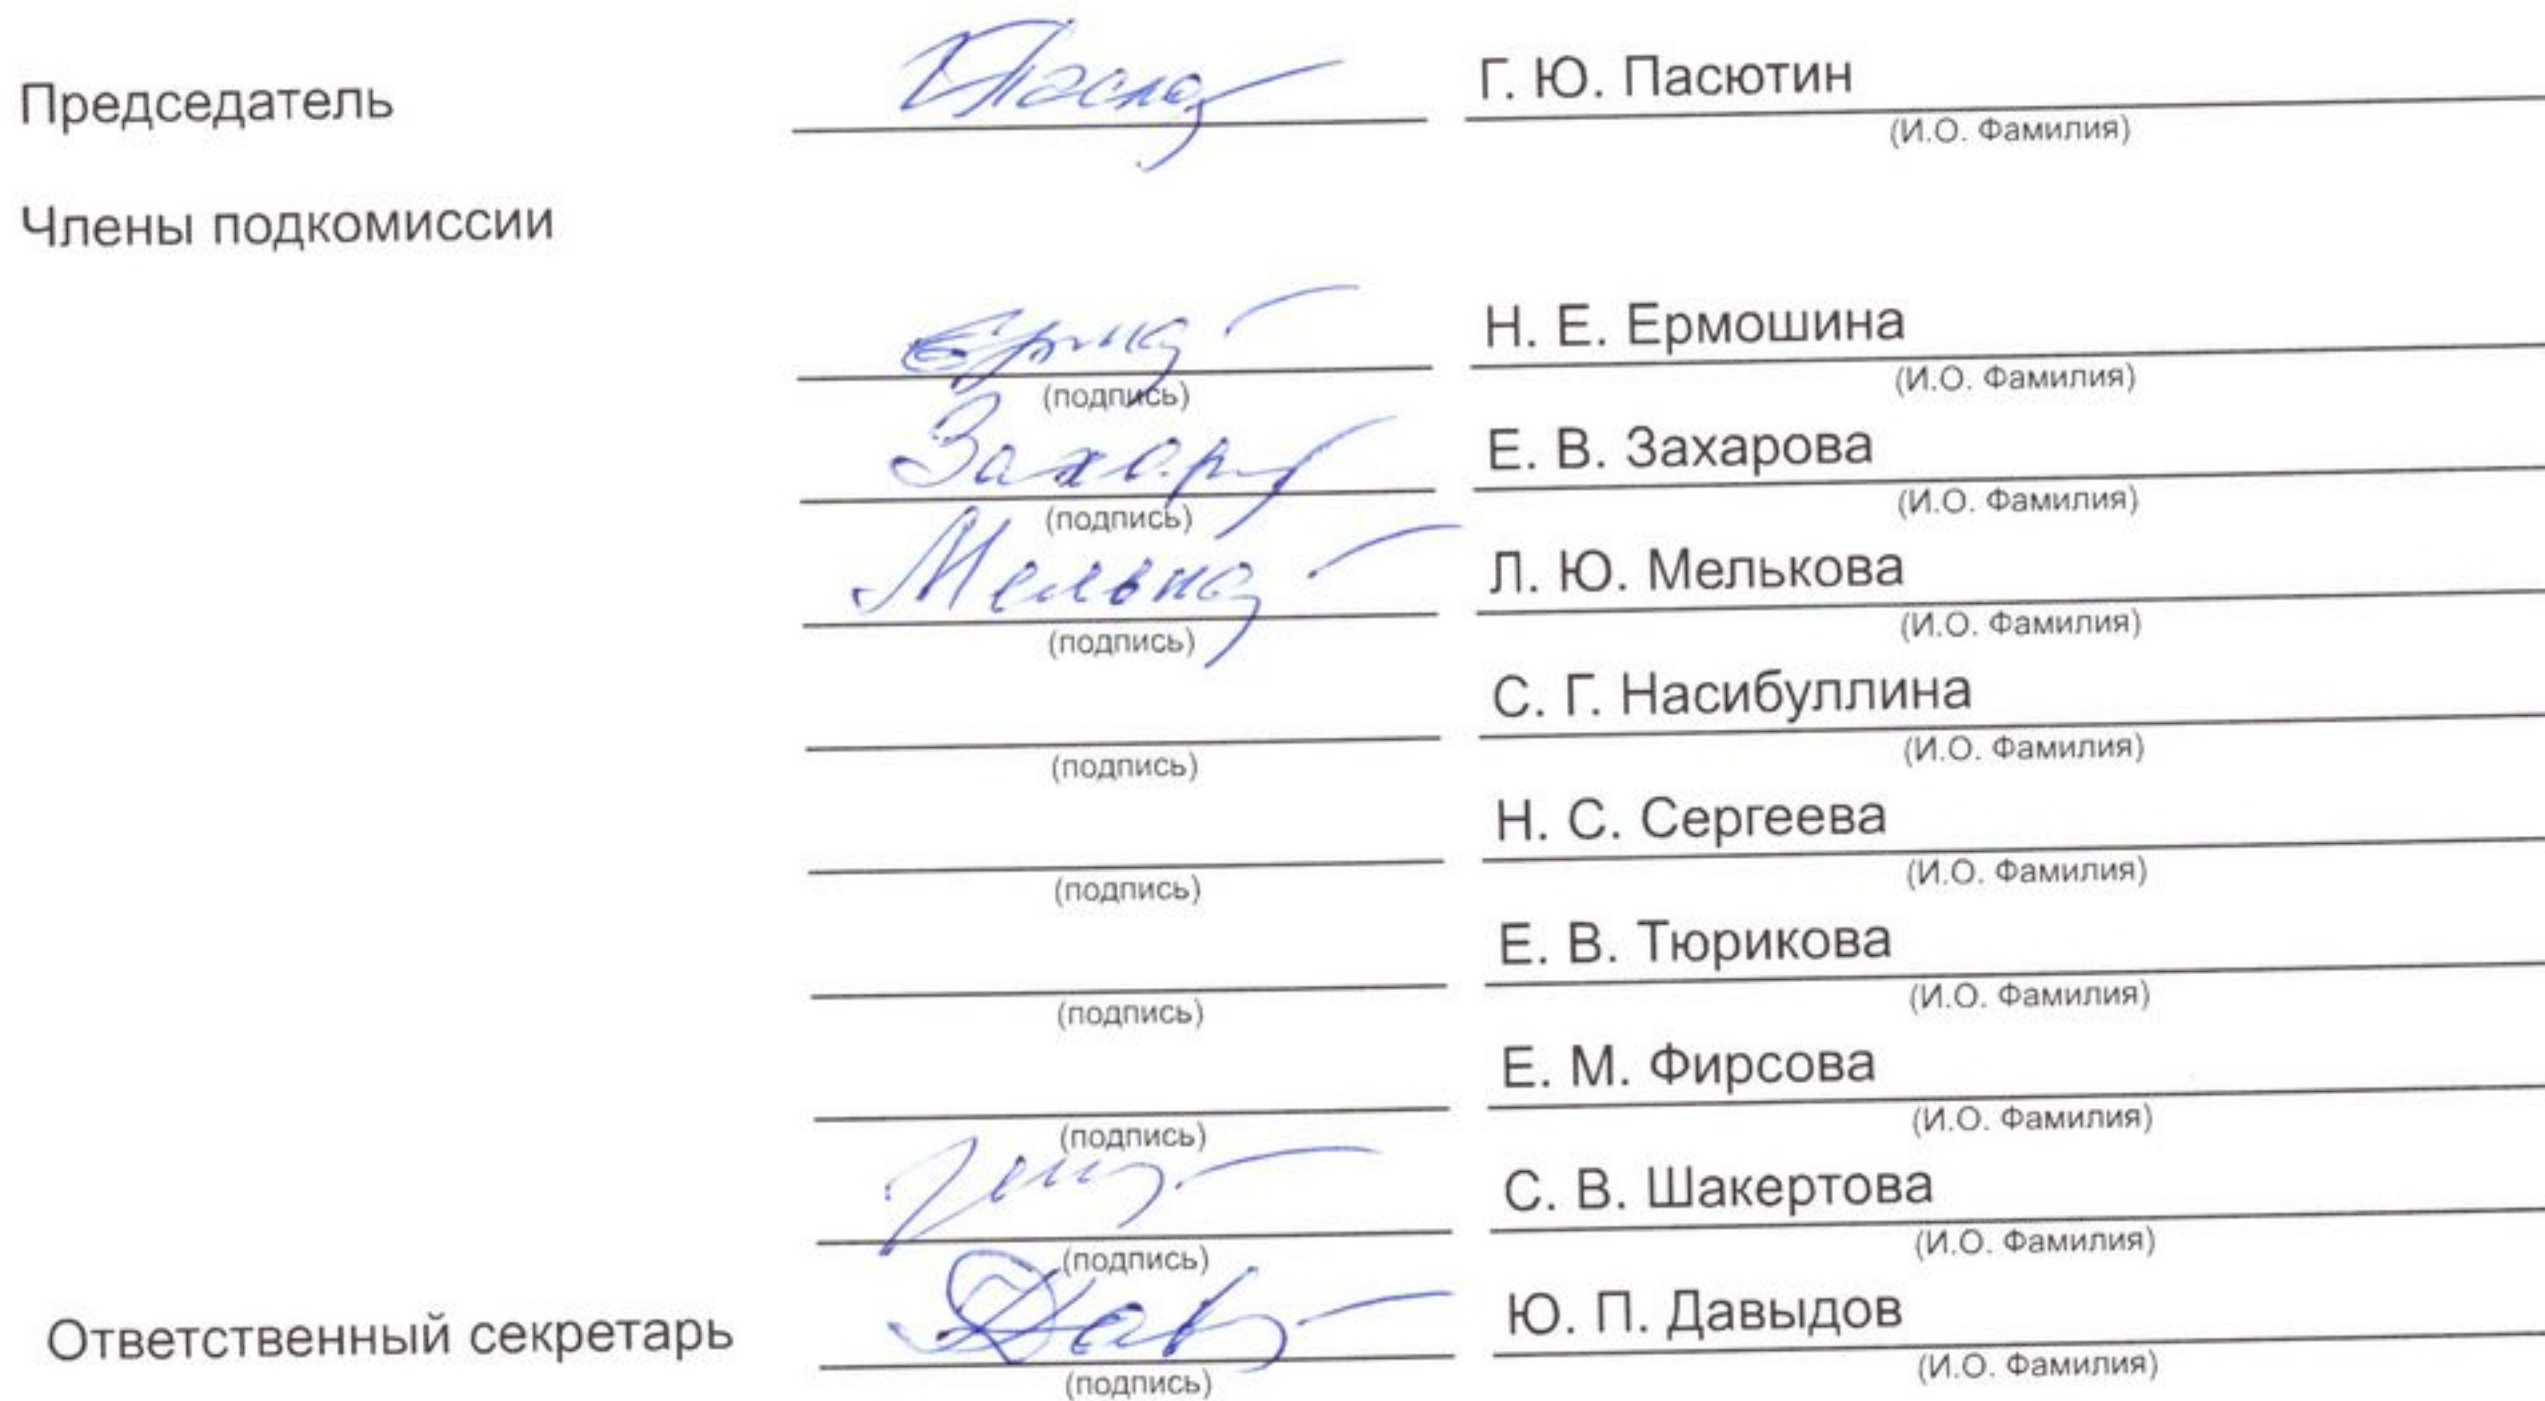 Председатель Г. Ю. Пасютин
(И.О. Фамилия)
Члены подкомиссии
Н. Е. Ермошина
(подпись) (И.О. Фамилия)
Захар Е. В. Захарова
(подпись) (И.О. Фамилия)
Л. Ю. Мелькова
(подпись) (И.О. Фамилия)
С. Г. Насибуллина
(подпись) (И.О. Фамилия)
Н. С. Сергеева
(подпись) (И.О. Фамилия)
Е. В. Тюрикова
(подпись) (И.О. Фамилия)
Е. М. Фирсова
(подпись) (И.О. Фамилия)
С. В. Шакертова
(подпись) (И.О. Фамилия)
Ответственный секретарь Ю. П. Давыдов
(подпись) (И.О. Фамилия)